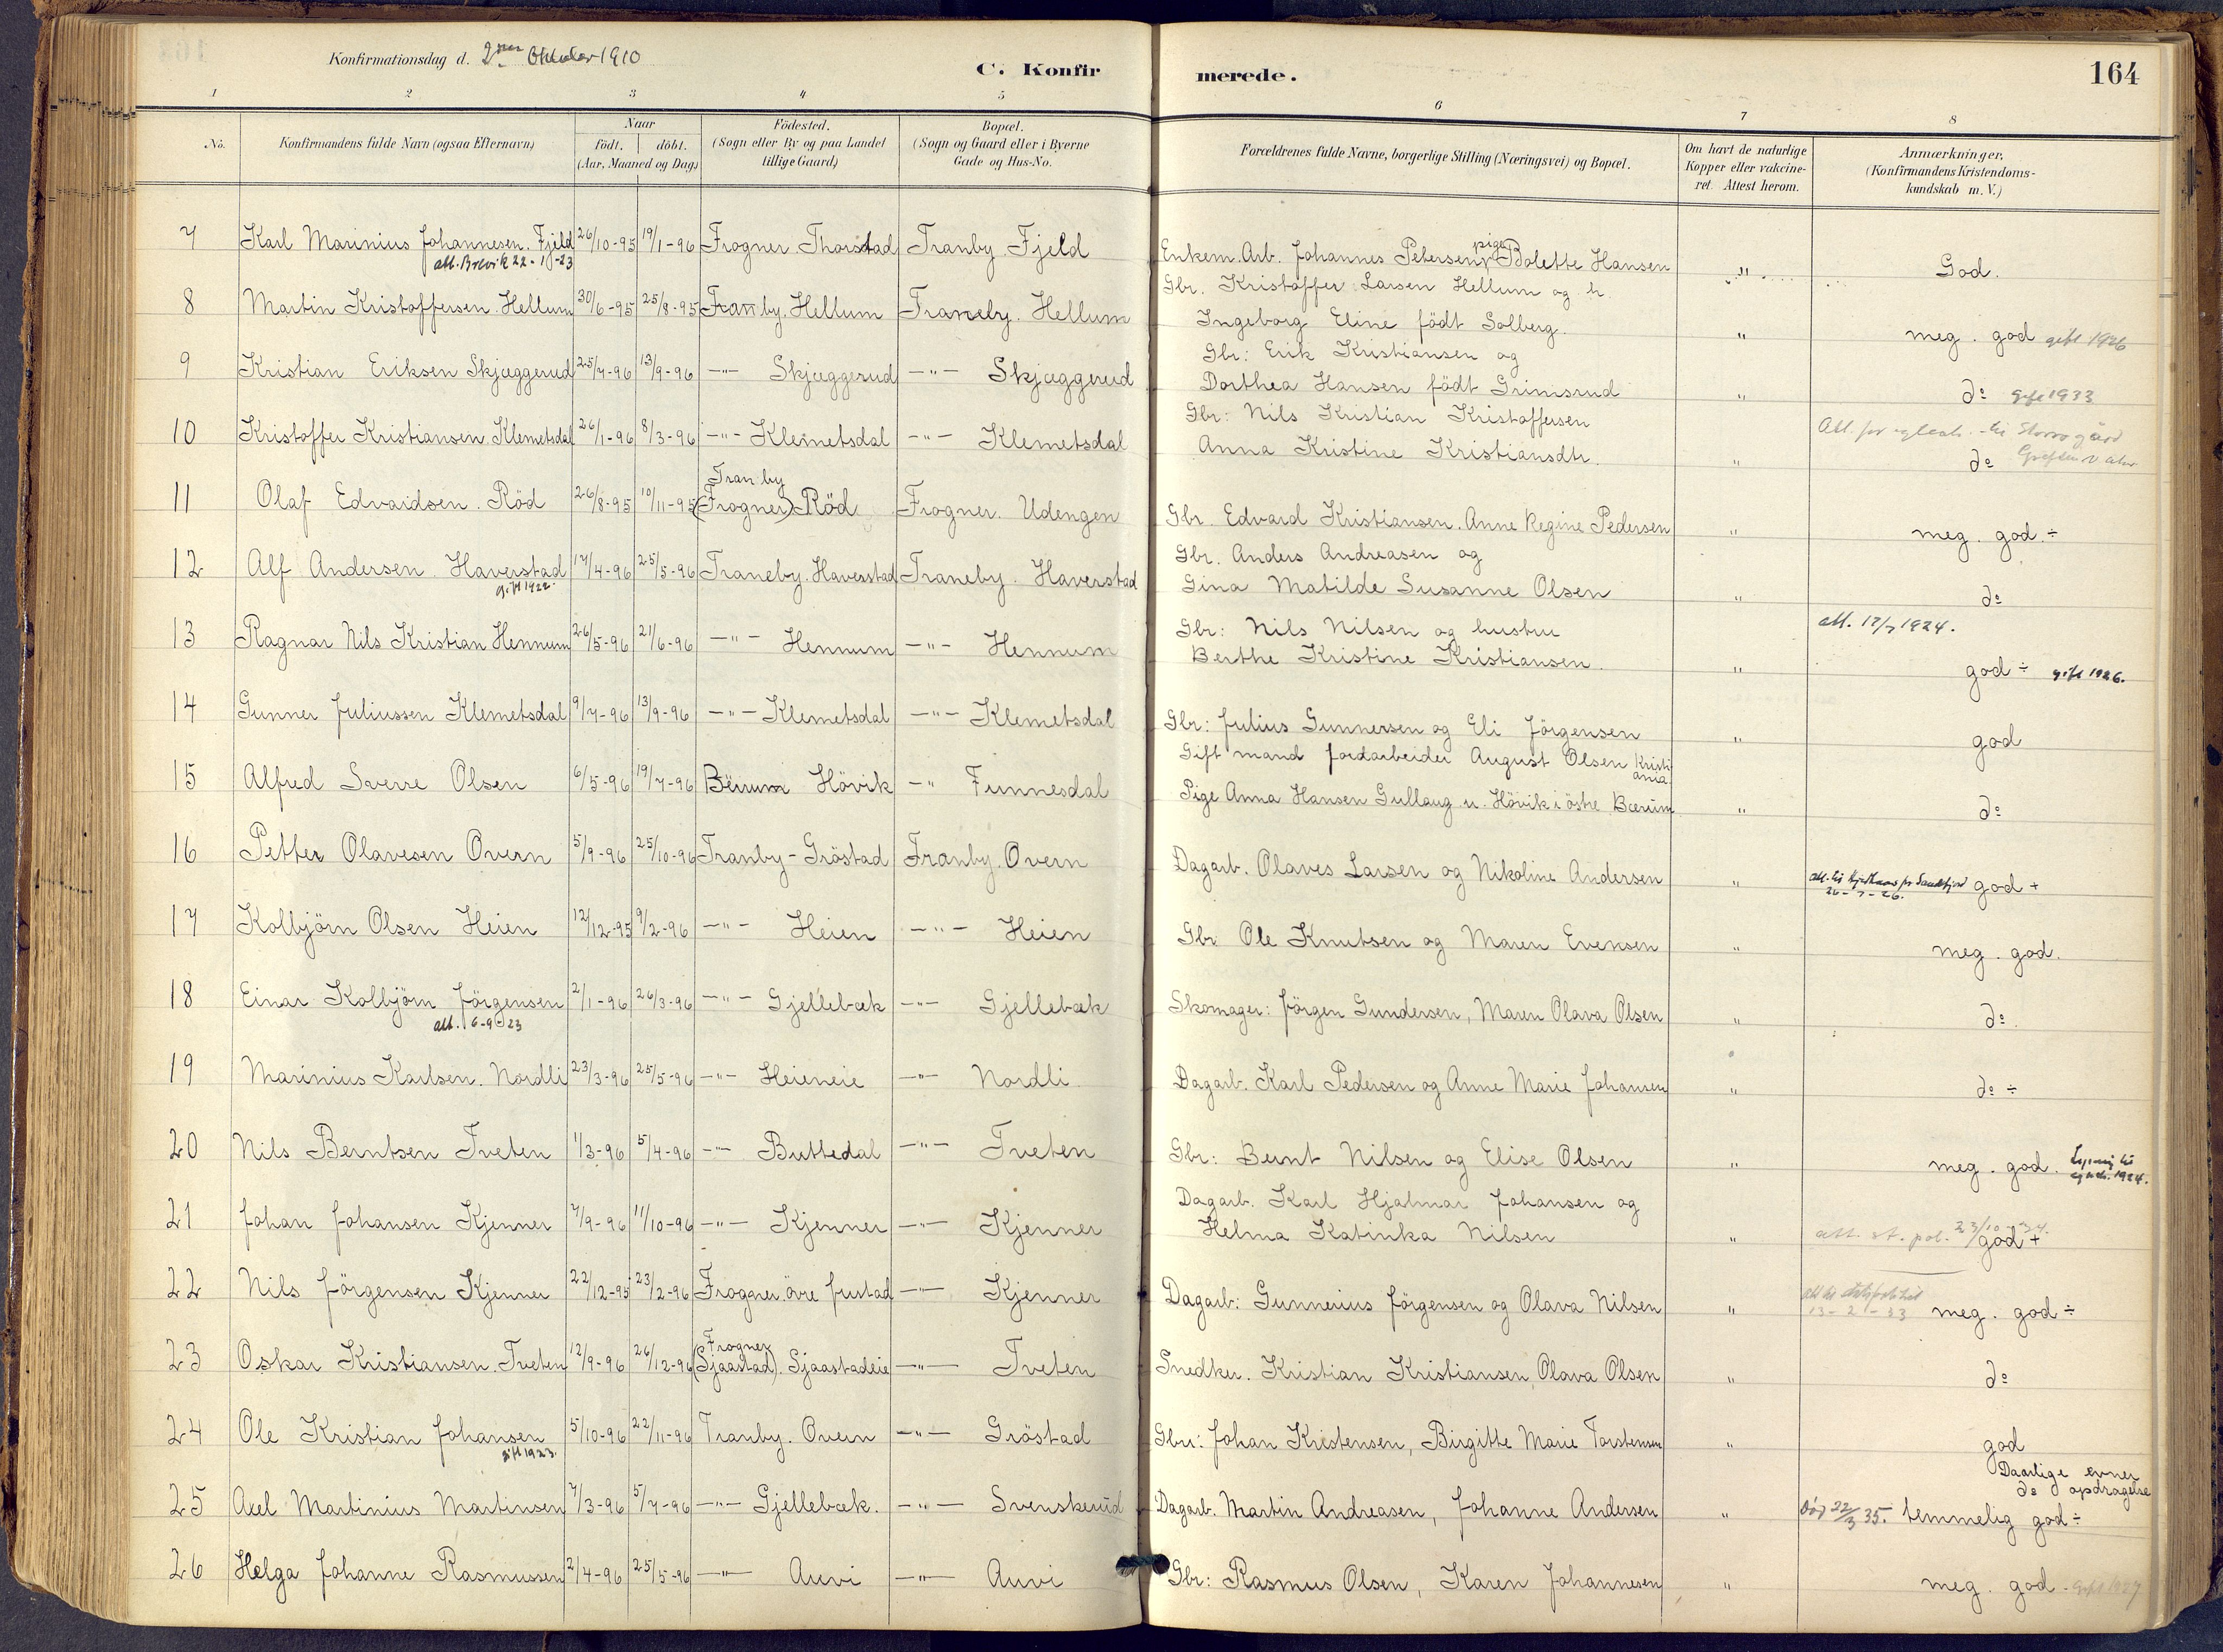 Konfirmationsdag d. 2den Oktober 1910
C. Konfirmerede.
164
1 2 3 4 5 6 7 8
No. Konfirmandens fulde Navn (ogsaa Efternavn) Naar födt. döbt. (Aar, Maaned og Dag) Födested. (Sogn eller By og paa Landet tillige Gaard) Bopæl. (Sogn og Gaard eller i Byerne Gade og Hus-No. Forældrenes fulde Navne, borgerlige Stilling (Næringsvei) og Bopæl. Om havt de naturlige Kopper eller vakcineret. Attest herom. Anmærkninger, (Konfirmandens Kristendomskundskab m. V.)
7 Karl Marinius Johannesen. Fjeld 26/10-95 19/1-96 Frogner. Thorstad Tranby. Fjeld Enkem. Arb. Johannes Petersen, pige Bolette Hansen " God.
att. Brevik 22-1-23
8 Martin Kristoffersen. Hellum 30/6-95 25/8-95 Tranby. Hellum Traneby. Hellum Gbr. Kristoffer Larsen Hellum og h.
Ingeborg Eline födt Solberg. " meg. god gift 1926
9 Kristian Eriksen Skjæggerud 25/7-96 13/9-96 -"- Skjæggerud -"- Skjæggerud Gbr: Erik Kristiansen og
Dorthea Hansen födt Grimsrud " do gift 1933
10 Kristoffer Kristiansen. Klemetsdal 26/1-96 8/3-96 -"- Klemetsdal -"- Klemetsdal Gbr: Nils Kristian Kristoffersen
Anna Kristine Kristiansdtr. " do
11 Olaf Edvardsen. Röd 26/8-95 10/11-95 Tranby (Frogner) Röd Frogner. Udengen Gbr. Edvard Kristiansen. Anne Regine Pedersen " meg. god. ÷
12 Alf Andersen Haverstad 17/4-96 25/5-96 Traneby. Haverstad Traneby. Haverstad Gbr. Anders Andreasen og
gift 1922. Gina Matilde Susanne Olsen " do
13 Ragnar Nils Kristian Hennum 26/5-96 21/6-96 -"- Hennum -"- Hennum Gbr: Nils Nilsen og hustru att. 12/7 1924.
Berthe Kristine Kristiansen. " god ÷ gift 1926.
14 Gunner Juliussen Klemetsdal 9/7-96 13/9-96 -"- Klemetsdal -"- Klemetsdal Gbr: Julius Gunnersen og Eli Jörgensen " god
15 Alfred Sverre Olsen 6/5-96 19/7-96 Bærum Hövik -" Funnesdal Gift mand Jordarbeider August Olsen Kristiania
Pige Anna Hansen Gullaug u. Hövik i östre Bærum " do
16 Petter Olavesen Overn 5/9-96 25/10-96 Tranby-Gröstad Tranby. Overn Dagarb. Olaves Larsen og Nikoline Andersen " god +
17 Kolbjörn Olsen Heien 12/12-95 9/2-96 -"- Heien -"- Heien Gbr Ole Knutsen og Maren Evensen " meg. god.
18 Einar Kolbjörn Jörgensen 2/1-96 26/3-96 -"- Gjellebæk -"- Gjellebæk Skomager: Jörgen Gundersen, Maren Olava Olsen " do.
att. 6-9-23
19 Marinius Karlsen. Nordli 23/3-96 25/5-96 -"- Heieneie -"- Nordli Dagarb. Karl Pedersen og Anne Marie Johansen " do ÷
20 Nils Berntsen Tveten 1/3-96 5/4-96 -"- Buttedal -"- Tveten Gbr: Bernt Nilsen og Elise Olsen " meg. god.
21 Johan Johansen Kjenner 7/9-96 11/10-96 -"- Kjenner -"- Kjenner Dagarb. Karl Hjalmar Johansen og
Helma Katinka Nilsen " att. st. pol. 23/10-34. god +
22 Nils Jörgensen Kjenner 22/12-95 23/2-96 Frogner. övre Justad -"- Kjenner Dagarb: Gunnerius Jörgensen og Olava Nilsen " 13-2-33 meg. god ÷
23 Oskar Kristiansen. Tveten 12/9-96 26/12-96 Frogner (Sjaastad). Sjaastadeie -"- Tveten Snedker. Kristian Kristiansen, Olava Olsen " do
24 Ole Kristian Johansen 5/10-96 22/11-96 Tranby. Overn -"- Gröstad Gbr: Johan Kristensen, Birgitte Marie Torstensen " god
gift 1923.
25 Axel Martinius Martinsen 7/3-96 5/7-96 -"- Gjellebæk. -"- Svenskerud Dagarb. Martin Andreasen, Johanne Andersen " Daarlige evner do opdragelse död 22/3 35. temmelig god ÷
26 Helga Johanne Rasmussen 2/4-96 25/5-96 -"- Auvi -"- Auvi Gbr: Rasmus Olsen, Karen Johannesen " meg. god. gift 1927